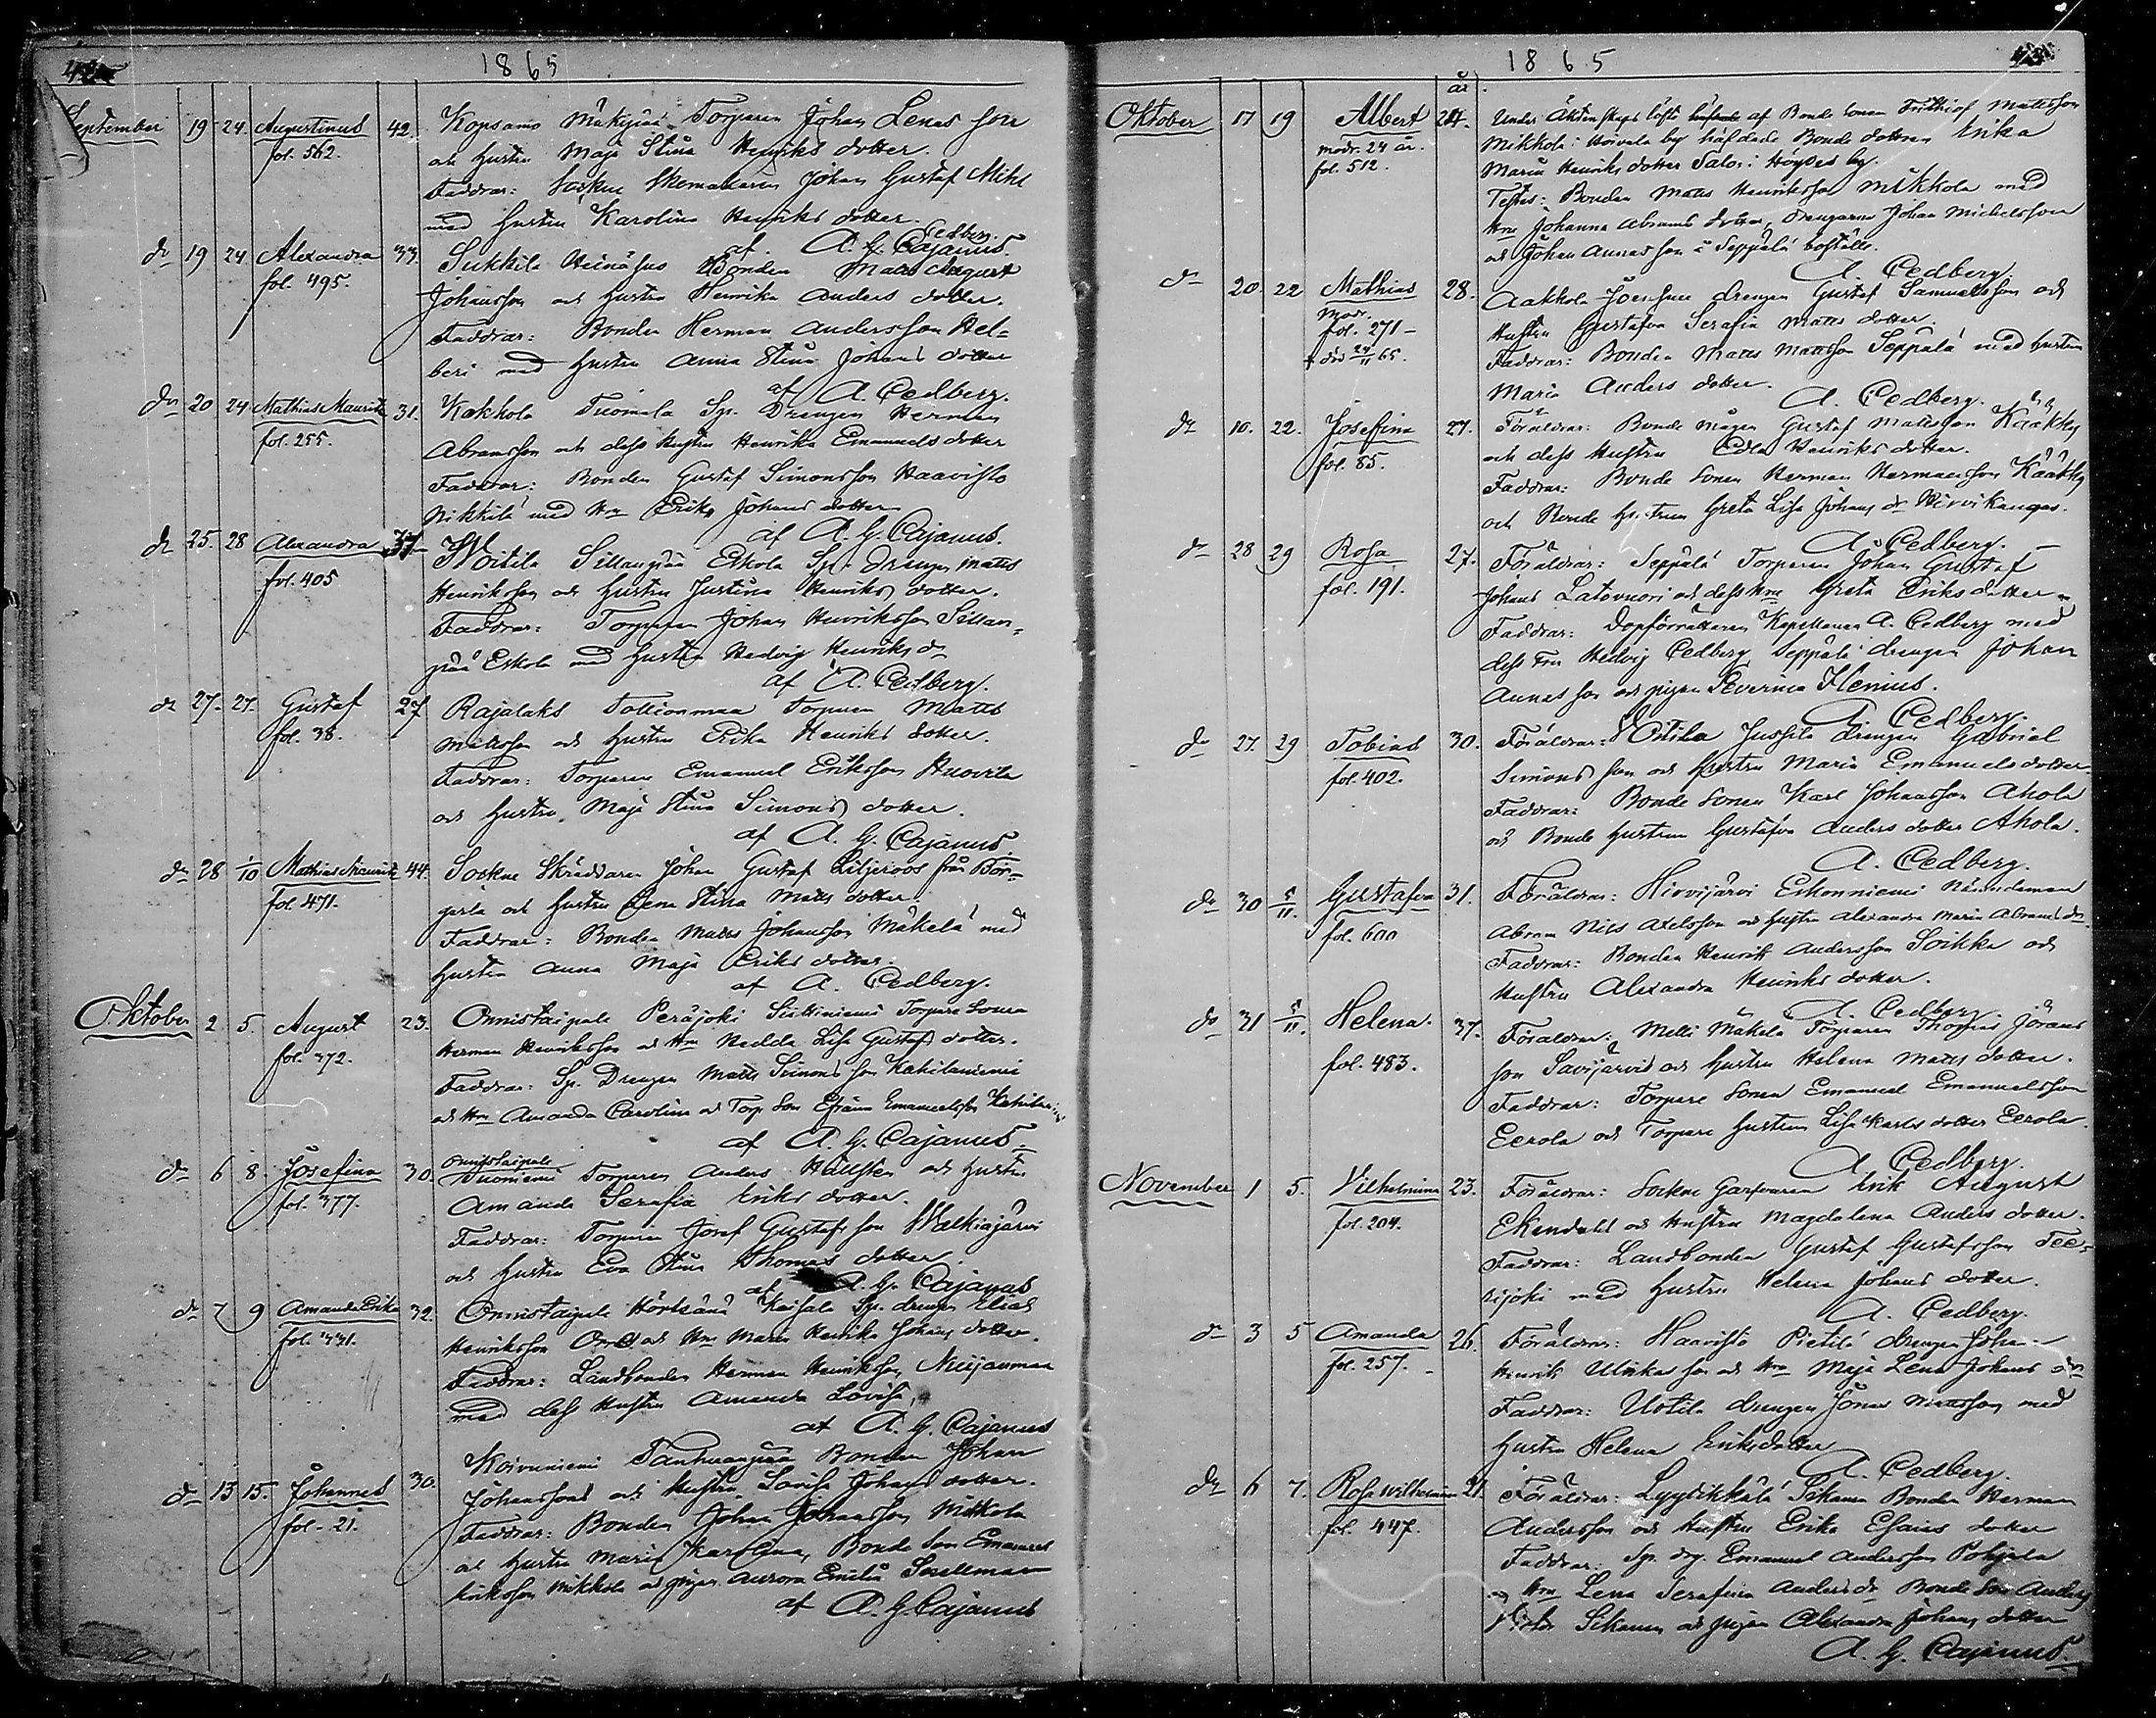 1865
September 19 24. Augustinus 42. Kopsamo Mäkipää Torparen Johan Lenas son
fol. 562. och hustru Maja Stina Henriks dotter.
Faddrar: Sockne Skomakaren Johan Gustaf
med hustru Karolina Henriks dotter.
Cedberg.
af A. G. Cajanus.
do 19 24 Alexandra 33. Sukkila Heinähuo Bonden Matts August
fol. 495. Johansson och hustru Henrika Anders dotter.
Faddrar: Bonden Herman Andersson Hel-
beri med hustru Anna Stina Johans dotter
af A. Cedberg.
do 20 24 Mathias Mauritz 31. Kakkola Tuomela Sp. Drengen Herman
fol. 255. Abramsson och dess hustru Henrika Emanuels dotter
Faddrar: Bonden Gustaf Simonsson Haavisto
Nikkilä med Hru Erika Johans dotter
af A. G. Cajanus.
do 25. 28 Alexandra 37 Woitila Sillanpää Eskola Sp. drengen Matts
fol. 405 Henriksson och hustru Justina Henriks dotter.
Faddrar: Torparen Johan Henriksson Sillan-
pää Eskola med hustru Hedvig Henriks dr
af A. Cedberg.
do 27. 27. Gustaf 27 Rajalaks Torparen Matts
fol. 38. Mattsson och hustru Erika Henriks dotter.
Faddrar: Torparen Emanuel Eriksson
och hustru Maja Stina Simons dotter.
af A. G. Cajanus.
do 28 1/10 Mathias Mauritz 44. Sockne Skräddaren Johan Gustaf Liljeroos från Bor-
fol. 471. och hustru Lena Stina Matts dotter.
Faddrar: Bonden Matts Johansson Mäkelä med
hustru Anna Maja Eriks dotter.
af A. Cedberg.
Oktober 2 5. August 23. Onnistaipale Peräjoki Torpare Sonen
fol. 372. Herman Henriksson och Hru Hedda Lisa Gustafs dotter.
Faddrar: Sp. Drengen Matts Simonsson Kahilaniemi
och Hru Amanda Carolina och Torp. Son Efraim Emanuelsson
af A. G. Cajanus.
do 6 8. Josefina 30. Onnistaipale
fol. 377. Torparen Anders Hällsten och hustru
Amanda Serafia Eriks dotter.
Faddrar: Torparen Josef Gustafsson Walkiajärvi
och hustru Eva Stina Thomas dotter
af A. G. Cajanus
do 7 9 Amanda Erika 32. Onnistaipale Kaisala Sp. drengen Elias
fol. 331. Henriksson och Hru Maria Henrika Johans dotter.
Faddrar: Landbonden Herman Henriksson
med dess hustru Amanda Lovisa,
af A. G. Cajanus
do 13 15. Johannes 30. Koivuniemi Tanhuanpää Bonden Johan
fol. 21. Johansson och hustru Lovisa Johans dotter.
Faddrar: Bonden Johan Johansson Mikkola
och hustru Maria Karolina, Bonde Son Emanuel
Eriksson Mikkola och pigan Aurora Emilia Snellman
af A. G. Cajanus
1865
år
Oktober 17 19 Albert 24. Under Äktenskaps löfte af Bonde Sonen Frithiof Mattsson
modr. 24 år. Mikkola i by häfdade Bonde dottren Erika
fol. 512. Maria Henriks dotter Salos i by.
Testes: Bonden Matts Henriksson Mikkola med
Hru Johanna Abrams dotter, Drengarne Johan Michelsson
och Johan Annasson i Seppälä boställe.
A. Cedberg.
do 20. 22 Mathias 28. Aakkola drengen Gustaf Samuelsson och
modr. Hustru Gustafva Serafia Matts dotter.
fol. 271 Faddrar: Bonden Matts Mattsson Seppälä med hustru
+ död 24/11 65. Maria Anders dotter.
A. Cedberg.
do 10. 22. Josefina 27. Föräldrar: Bonde mågen Gustaf Mattsson Kääkky
fol. 85. och dess Hustru Edla Henriks dotter.
Faddrar: Bonde Sonen Herman Hermansson Kääkky
och Bonde hustrun Greta Lisa Johans dr
A. Cedberg.
do 28 29 Rosa 27. Föräldrar: Seppälä Torparen Johan Gustaf
fol. 191. Johans Latovuori och dess Hru Greta Eriks dotter.
Faddrar: Dopförrättaren Kapellanen A. Cedberg med
dess Fru Hedvig Cedberg Seppälä drengen Johan
Annasson och pigan Severina Flenius.
A. Cedberg.
do 27. 29 Tobias 30. Föräldrar: Jussila drengen Gabriel
fol. 402. Simonsson och Hustru Maria Emanuels dotter.
Faddrar: Bonde Sonen Karl Johansson Ahola
och Bonde hustrun Gustafva Anders dotter Ahola.
A. Cedberg.
do 30 5/11. Gustafva 31. Föräldrar: Hirvijärvi Eskonniemi Nämndeman
fol. 600 Abram Nils Axelsson och hustru Alexandra Maria Abrams dr
Faddrar: Bonden Henrik Andersson Soikka och
Hustru Alexandra Henriks dotter.
A. Cedberg.
do 31 5/11. Helena. 37. Föräldrar: Melli Mäkelä Torparen Thomas Jörans
fol. 483. son Savijärvi och hustru Helena Matts dotter.
Faddrar: Torpare Sonen Emanuel Emanuelsson
Eerola och Torpare hustrun Lisa Karls dotter Eerola.
A. Cedberg.
November 1 5. Vilhelmina 23. Föräldrar: Sockne Garfvaren Erik August
fol. 204. Ekendahl och Hustru Magdalena Anders dotter.
Faddrar: Landbonden Gustaf Gustafsson Tee-
rijoki med Hustru Helena Johans dotter.
A. Cedberg.
do 3 5 Amanda 26. Föräldrar: Haavisto Pietilä drengen Johan
fol. 257. Henrik Ulrikasson och Hru Maja Lena Johans dr
Faddrar: Uotila drengen Jonas med
hustru Helena Eriksdotter
A. Cedberg.
do 6 7. Rosa Wilhelmina 21. Föräldrar: Lyytikkälä Sikanen Bonden Herman
fol. 447. Andersson och Hustru Erika Esaias dotter
Faddrar: Sp. drg. Emanuel Andersson Pohjala
Hru Lena Serafina Anders dr Bonde Son Anders
Sikanen och pigan Alexandra Johans dotter
A. G. Cajanus.